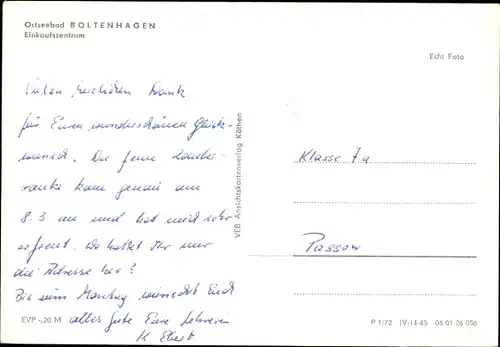 Ostseebad BOLTENHAGEN
Einkaufszentrum
Echt Foto
Vielen herzlichen Dank
für Euren wunderschönen Glück-
wunsch. Die feine
kam genau am
8.3 an und hat mich sehr
erfreut. Wo hattet Ihr nur
die Adresse her?
Bis zum Montag wünscht Euch
alles gute Eure Lehrerin
K Ebert
VEB Ansichtskartenverlag Köthen
Klasse 7a
Passow
EVP -,20 M
P 1/72 IV-14-45 06 01 06 056